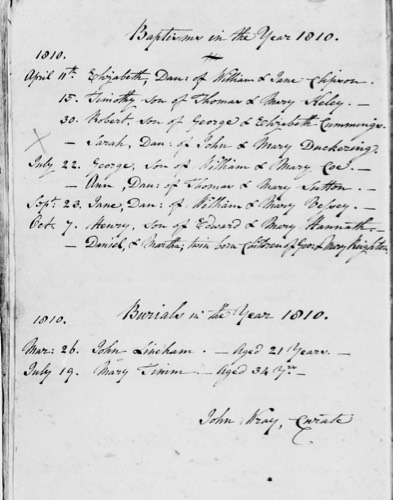 Baptisms in the Year 1810.
1810.
April 11th Elizabeth, Dau: of William & Jane
15. Timothy Son of Thomas & Mary —
30. Robert, Son of George & Elizabeth Cummings.
— Sarah, Dau: of John & Mary Duckering. —
July 22. George, Son of William & Mary Coe. —
— Ann, Dau: of Thomas & Mary Sutton. —
Sept: 23. Jane, Dau: of William & Mary Vessey. —
Oct: 7. Henry, Son of Edward & Mary Hannath. —
— Daniel, & Martha; twin born Children of Geo: & Mary
Burials in the Year 1810.
1810.
Mar: 26. John Lincham. — Aged 21 Years. —
July 19. Mary Timm — Aged 34 Yrs —
John Wray, Curate